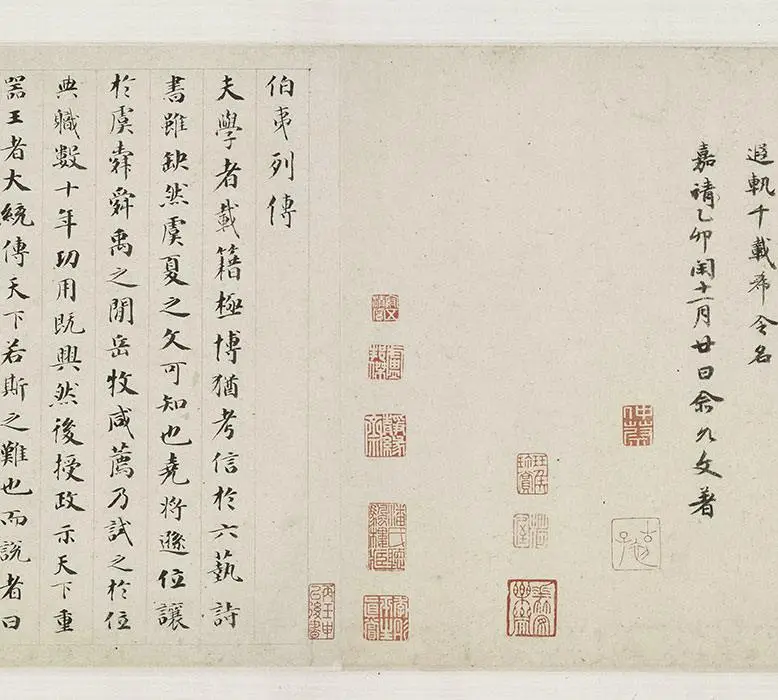 遐軌千載希令名
嘉靖乙卯閏十一月廿日佘文著
潘氏聽颿樓藏
伯夷列傳
夫學者載籍極博猶考信於六藝詩
書雖缺然虞夏之文可知也堯將遜位讓
於虞舜舜禹之閒岳牧咸薦乃試之於位
典職數十年功用既興然後授政示天下重
器王者大統傳天下若斯之難也而說者曰